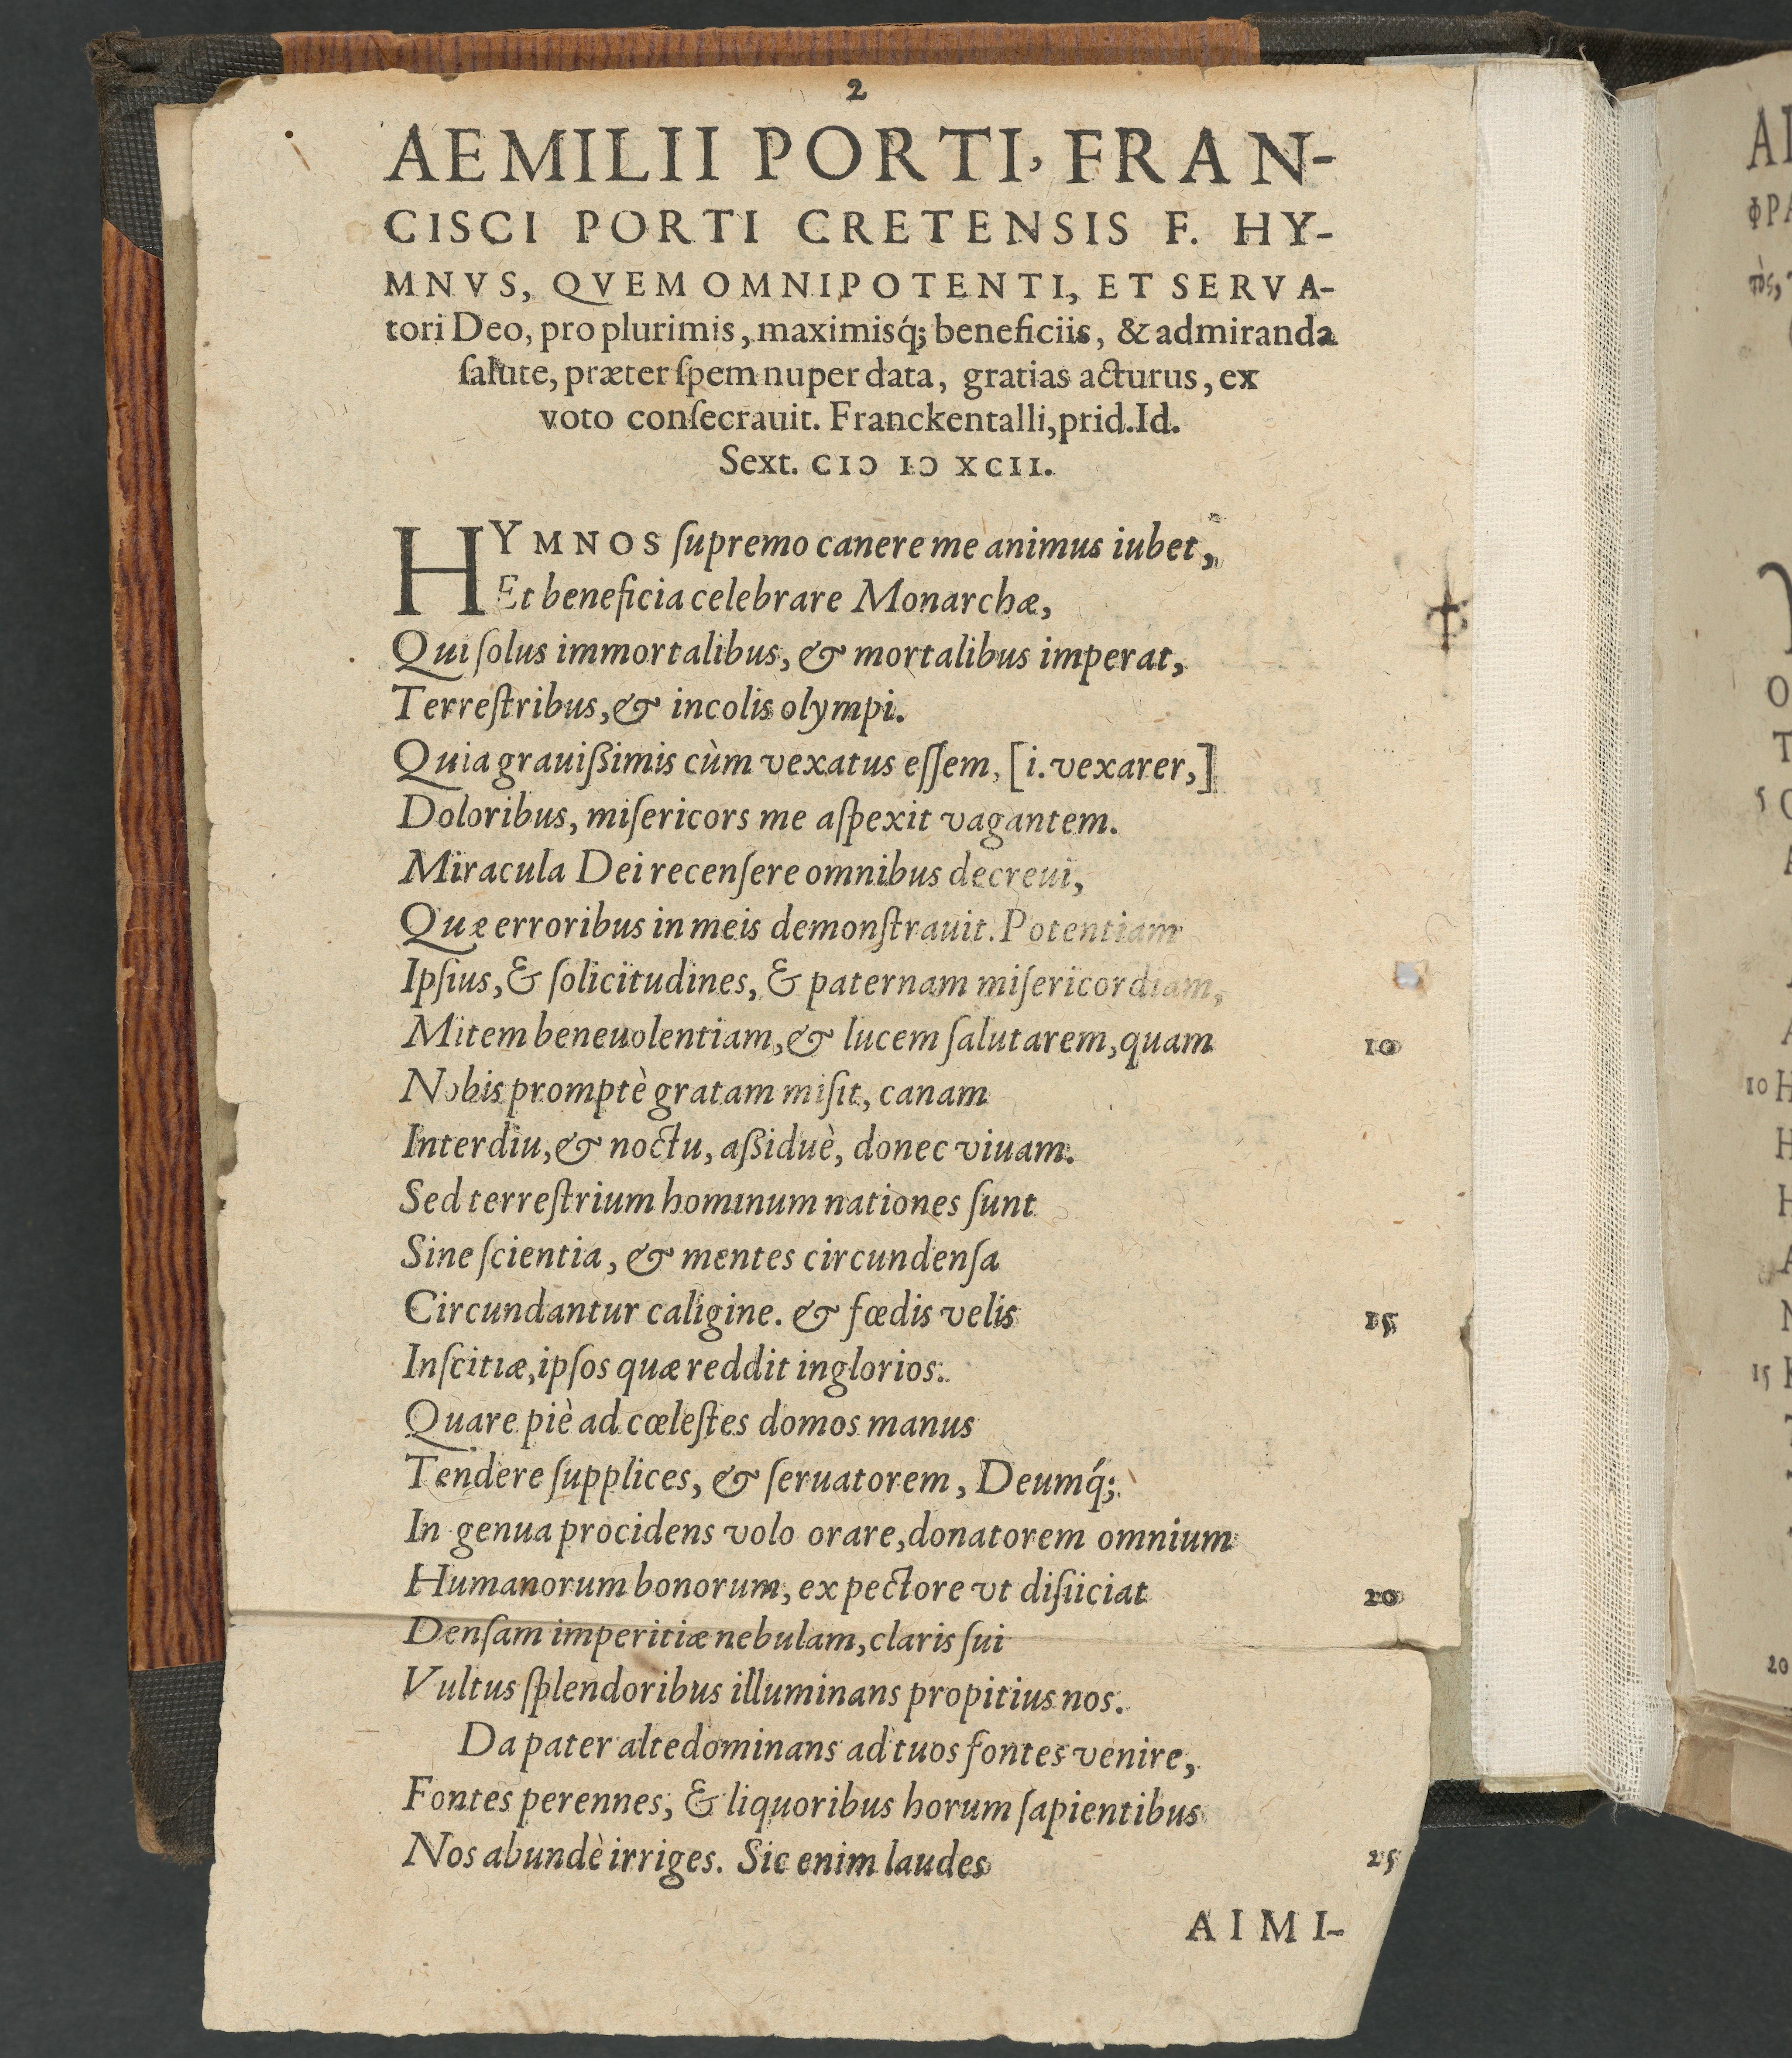 2
AEMILII PORTI, FRAN-
CISCI PORTI CRETENSIS F. HY-
MNVS, QVEM OMNIPOTENTI, ET SERVA-
tori Deo, pro plurimis, maximisq́; beneficiis, & admiranda
ſalute, præter ſpem nuper data, gratias acturus, ex
voto conſecrauit. Franckentalli, prid. Id.
Sext. CIↃ IↃ XCII.
HYMNOS ſupremo canere me animus iubet,
Et beneficia celebrare Monarchæ,
Qui ſolus immortalibus, & mortalibus imperat,
Terreſtribus, & incolis olympi.
Quia grauißimis cùm vexatus eſſem, [i. vexarer,]
Doloribus, miſericors me aſpexit vagantem.
Miracula Dei recenſere omnibus decreui,
Quæ erroribus in meis demonſtrauit. Potentiam
Ipſius, & ſolicitudines, & paternam miſericordiam,
Mitem beneuolentiam, & lucem ſalutarem, quam 10
Nobis promptè gratam miſit, canam
Interdiu, & noctu, aßiduè, donec viuam.
Sed terreſtrium hominum nationes ſunt
Sine ſcientia, & mentes circundenſa
Circundantur caligine. & fœdis velis 15
Inſcitiæ, ipſos quæ reddit inglorios.
Quare piè ad cœleſtes domos manus
Tendere ſupplices, & ſeruatorem, Deumq́;
In genua procidens volo orare, donatorem omnium
Humanorum bonorum, ex pectore vt diſiiciat 20
Denſam imperitiæ nebulam, claris ſui
Vultus ſplendoribus illuminans propitius nos.
Da pater altedominans ad tuos fontes venire,
Fontes perennes, & liquoribus horum ſapientibus
Nos abundè irriges. Sic enim laudes 25
AIMI-
ΦΡΑ
τὸς,
5
10
15
20